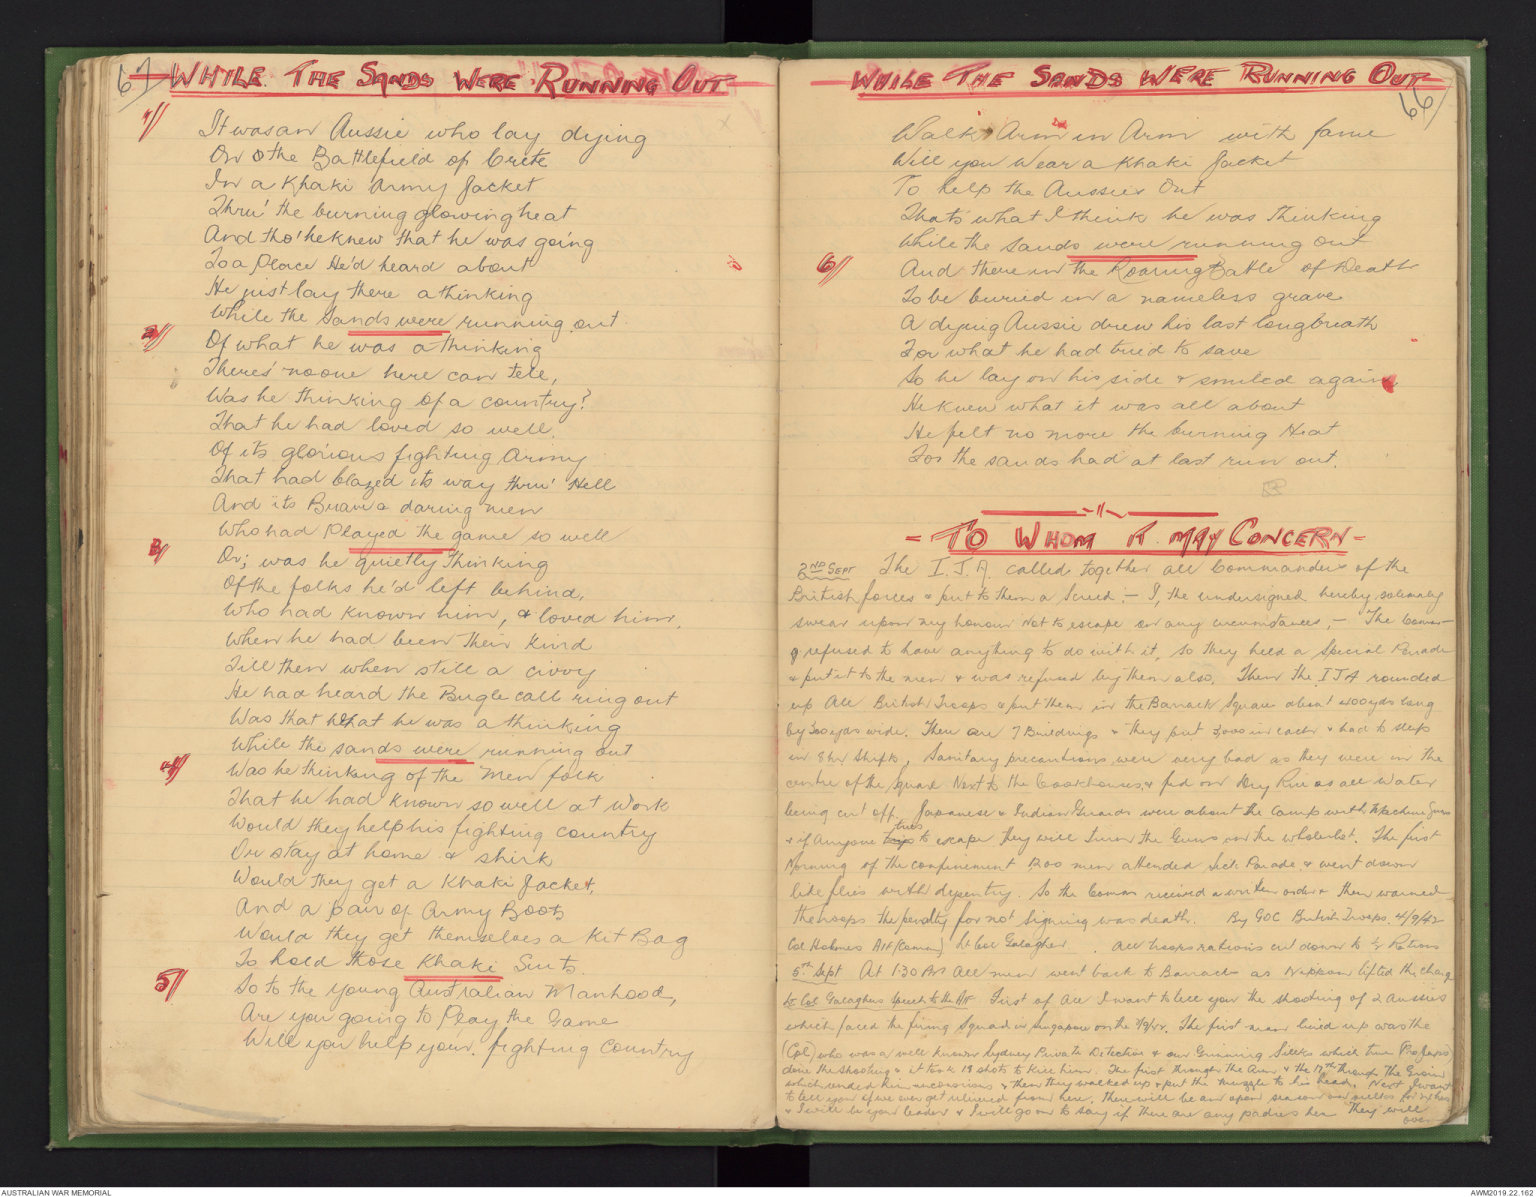 67
WHILE THE SANDS WERE RUNNING OUT
1//
It was an Aussie who lay dying
On the Battlefield of Crete
In a Khaki Army Jacket
Thru' the burning glowing heat
And tho' he knew that he was going
To a Place He'd heard about
He just lay there a thinking
While the sands were running out.
2//
Of what he was a thinking
Theres' no one here can tell,
Was he thinking of a country?
That he had loved so well.
Of its glorious fighting Army
That had blazed its way thru' Hell
And its Brave & daring men
Who had Played the game so well
3//
Or; was he quietly thinking
Of the folks he'd left behind,
Who had known him, & loved him.
When he had been their kind
Till then when still a civvy
He had heard the Bugle call ring out
Was that what he was a thinking
While the sands were running out
4//
Was he thinking of the Men folk
That he had known so well at Work
Would they help his fighting country
Or stay at home & shirk
Would they get a Khaki Jacket,
And a pair of Army Boots
Would they get themselves a Kit Bag
To hold those Khaki Suits.
5//
So to the young Australian Manhood,
Are you going to Play the Game
Will you help your fighting Country
WHILE THE SANDS WERE RUNNING OUT
66/
Walk Arm in Arm with fame
Will you Wear a Khaki Jacket
To help the Aussies Out
Thats what I think he was thinking
While the sands were running out
6//
And there in the Roaring Batle of Death
To be buried in a nameless grave
A dying Aussie drew his last long breath
For what he had tried to save
So he lay on his side & smiled again
He knew what it was all about
He felt no more the burning Heat
For the sands had at last run out.
- TO WHOM IT MAY CONCERN -
2ND SEPT The I.J.A. called together all Commanders of the
British forces & put to them a Screed :- I, the undersigned hereby solemnly
swear upon my honour not to escape on any circumstances, - The Comm-
g refused to have anything to do with it, so they held a Special Parade
& put it to the men & was refused by them also. Then the IJA rounded
up All British Troops & put them in the Barrack Square about 400yds long
by 300yds wide. There are 7 Buildings & they put 3,000 in each & had to sleep
in 8 hr shifts, Sanitary precautions were very bad as they were in the
centre of the Square Next to the Cookhouses, & fed on Dry Rice as all Water
being cut off. Japanese & Indian Guards were about the Camp with Machine Guns
& if Anyone tries to escape they will turn the Guns on the whole lot. The first
Morning of the confinement 1300 men attended Sick Parade & went down
like flies with dysentry. So the Comm received a written order & then warned
the troops the penalty for not Signing was death. By GOC British Troops. 4/9/42
Col Holmes AIF (Comm) Lt Col Galagher. All troops rations cut down to ½ Rations
5th Sept At 1.30 PM All men went back to Barracks as Nippon lifted the charge
Lt Col Galaghers Speech to the AIF First of All I want to tell you the shooting of 2 Aussies
which faced the firing Squad in Singapore on the 2/9/42. The first man lined up was the
(Cpl) who was a well known Sydney Private Detective & our Grinning Sikhs which
done the shooting & it took 18 shots to kill him. The first through the Arm & the 17th through The Groin
which rended him unconscious & then they walked up & put the muzzle to his head. Next I want
to tell you if we ever get relieved from here, There will be an open season on
& I will be your leader & I will go on to say if there are any padres here They will
over